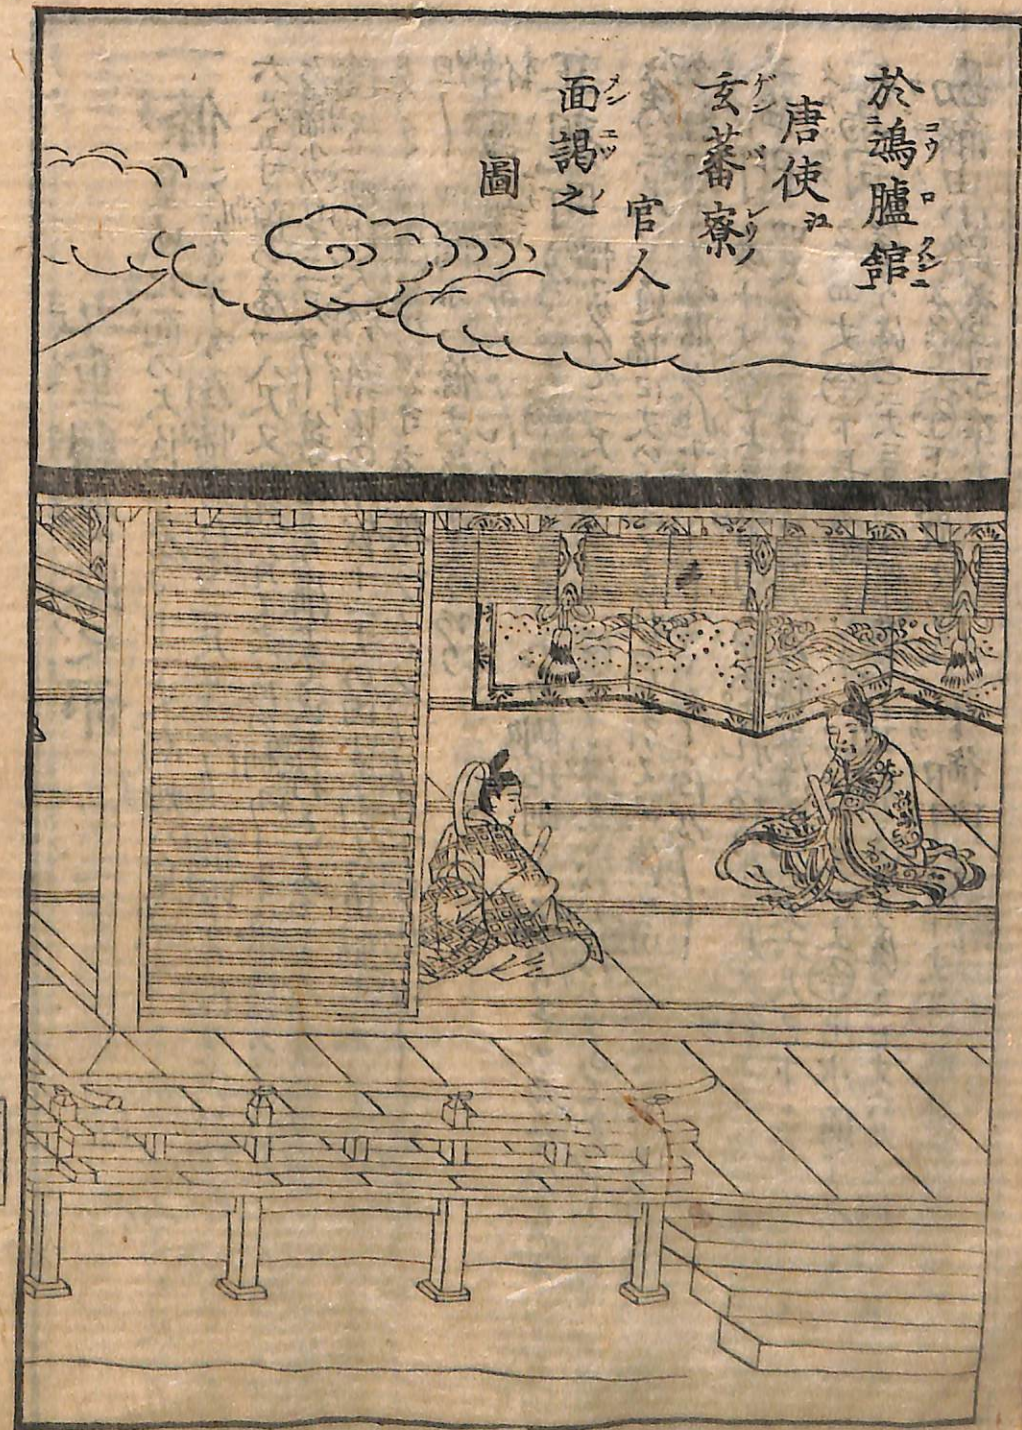 於鴻臚館
唐使江
玄蕃寮
官人
面謁之
圖